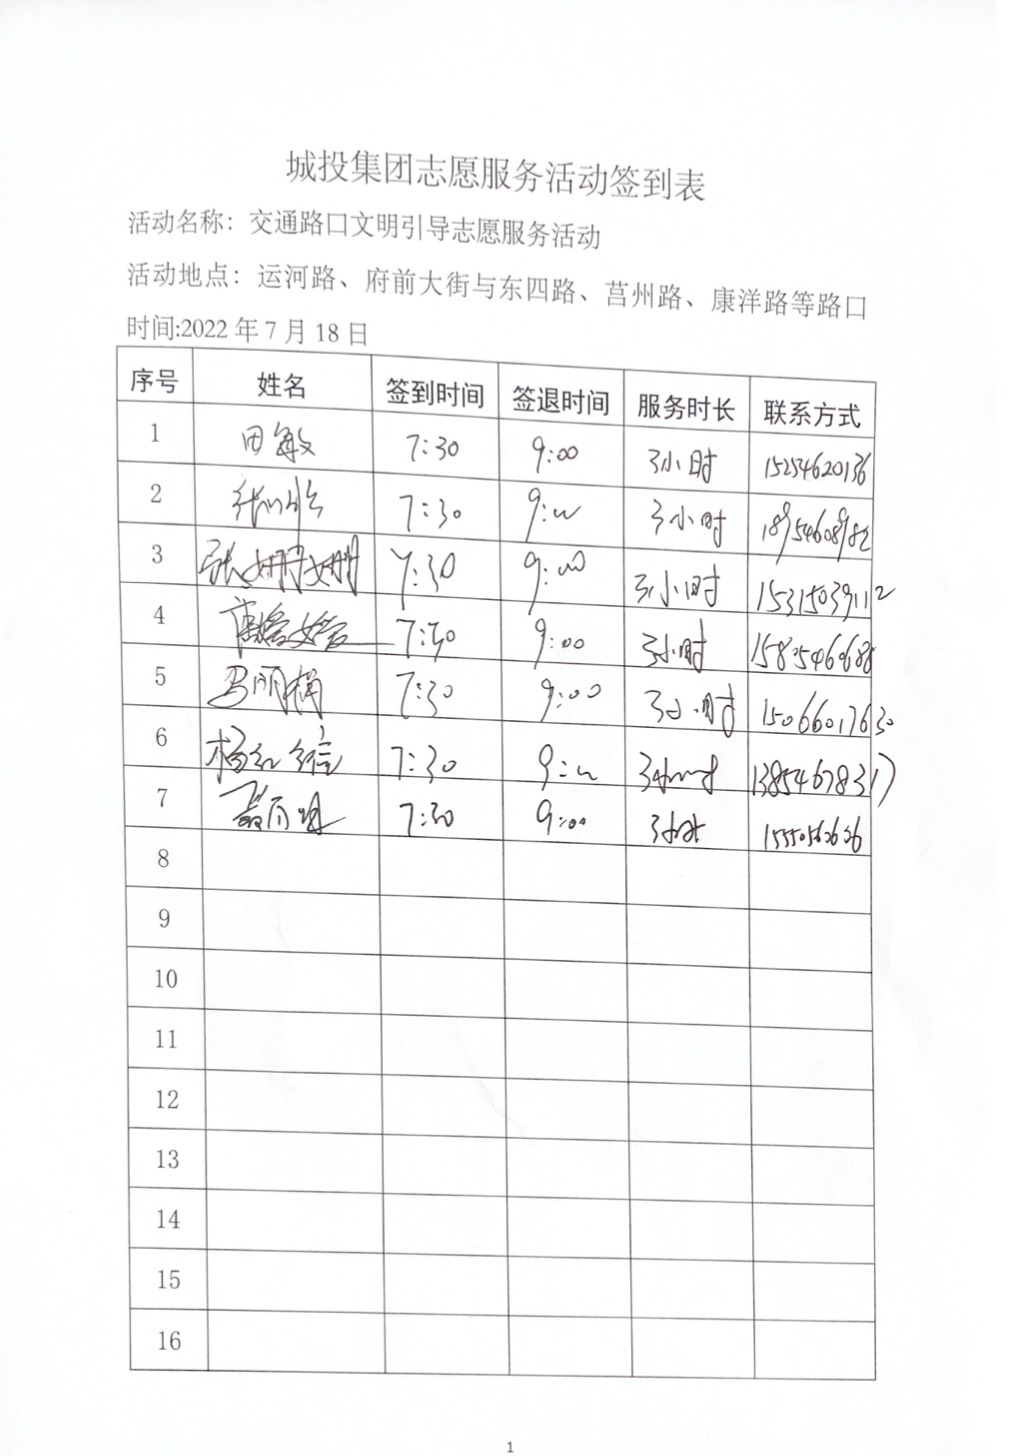 城投集团志愿服务活动签到表
活动名称：交通路口文明引导志愿服务活动
活动地点：运河路、府前大街与东四路、莒州路、康洋路等路口
时间:2022年7月18日
序号 姓名 签到时间 签退时间 服务时长 联系方式
1 田敏 7:30 9:00 3小时 15254620136
2 7:30 9:00 3小时 18954608982
3 张姗姗 7:30 9:00 3小时 15315039112
4 7:30 9:00 3小时
5 马丽梅 7:30 9:00 3小时 15066017630
6 杨红 7:30 9:00 3小时 13854678317
7 7:30 9:00 3小时
8
9
10
11
12
13
14
15
16
1